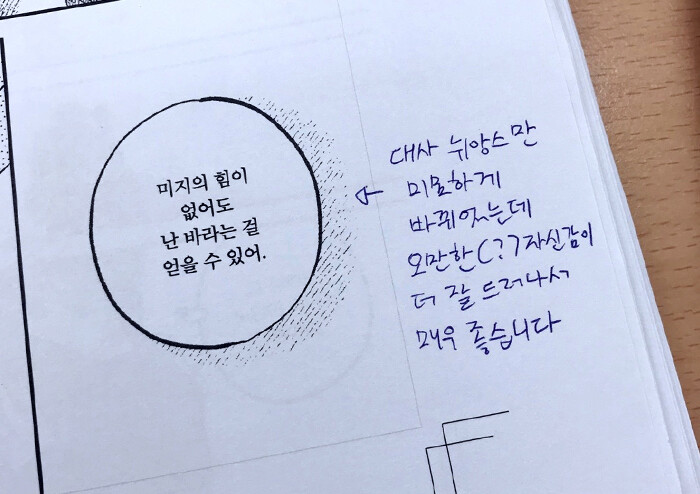 미지의 힘이
없어도
난 바라는 걸
얻을 수 있어.
대사 뉘앙스만
미묘하게
바뀌었는데
오만한(?) 자신감이
더 잘 드러나서
매우 좋습니다